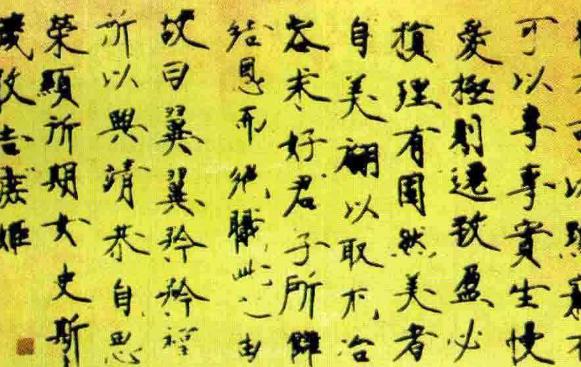 可以
可以專專實生慢
愛極則遷致盈必
損理有固然美者
自美翩以取尤冶
容求好君子所讎
結恩而絕職此之由
故曰翼翼矜矜福
所以興靖恭自思
榮顯所期女史斯
箴敢告庶姬